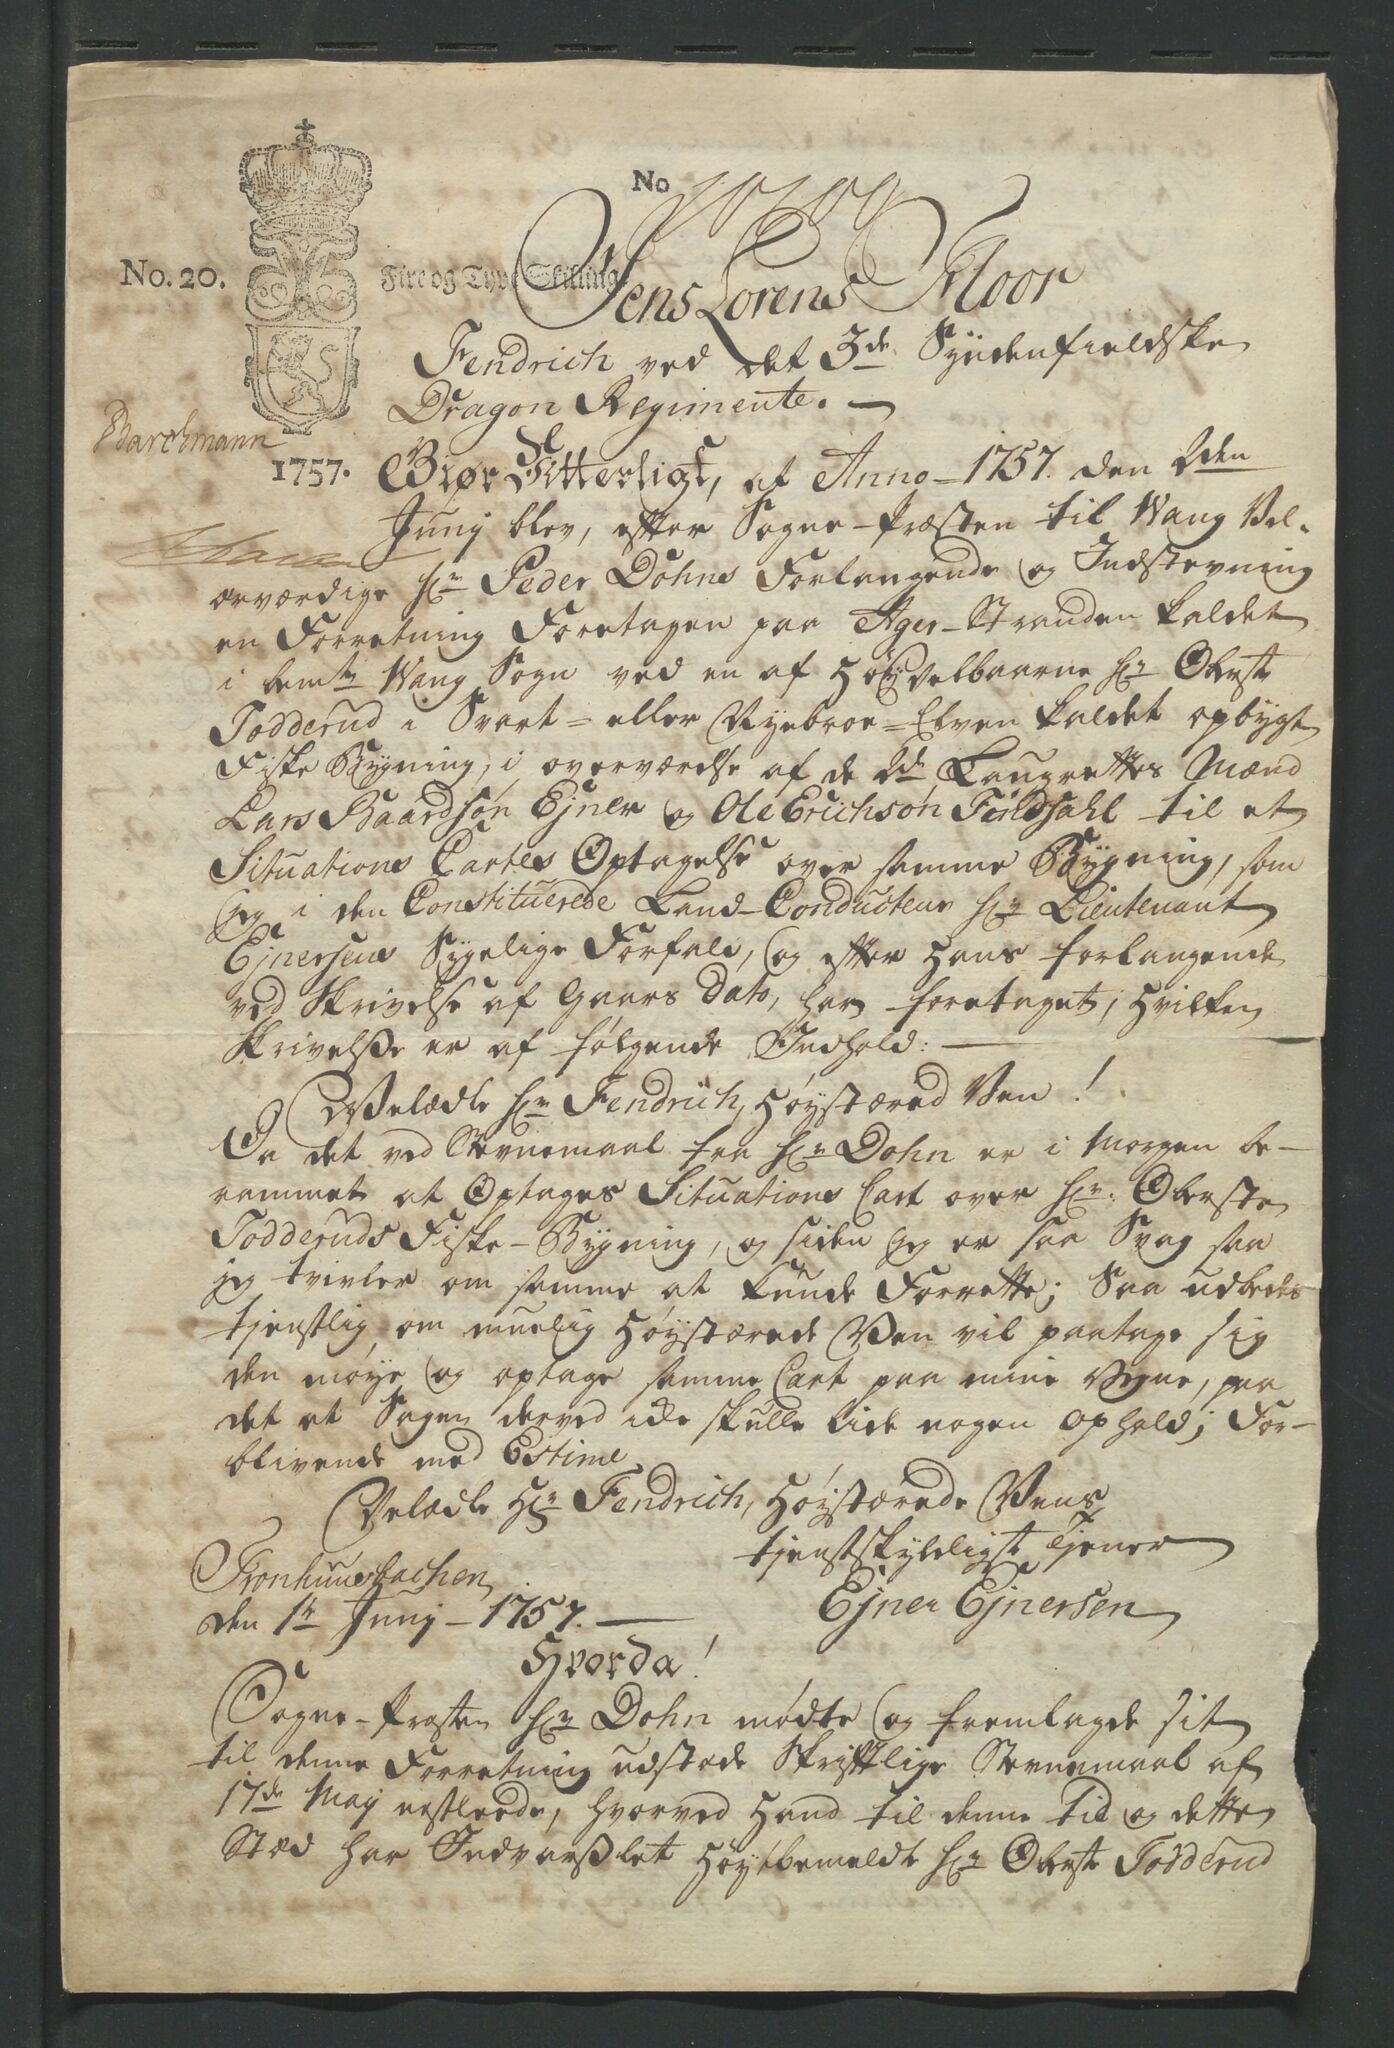 No
No. 20. Fire og Tyve Skilling
Jens Lorens Floor
Fendrich ved det 3de Syndenfieldske
Dragon Regimente. —
1757. Giør Vitterligt, at Anno — 1757. den 2den
Junij blev, efter Sogne-Præsten til Wang Vel-
ærværdige Hr: Peder Dohns Forlangende og Indstevning
en Forretning Foretagen paa Ager-Stranden kaldet
i bemte Wang Sogn ved en af Høyvelbaarne Hr: Oberste
Todderud i Svart- eller Nyebroe-Elven kaldet opbygt
Fiske Bygning, i overværelse af de 2de Laugrettes Mænd
Lars Baardsøn Ejner og Ole Erichsøn Findsahl til et
Situations Cartes Optagelse over samme Bygning, som
jeg i den Constituerede Land-Conducteur Hr: Lieutenant
Ejnersens Sygelige Forfald, og efter Hans forlangende
ved Skrivelse af Gaars Dato, har foretaget; hvilken
Skrivelße er af følgende Indhold: —
Velædle Hr: Fendrich, Høystærede Ven!
Da det ved Stevnemaal fra Hr: Dohn er i Morgen be-
rammet at Optages Situations Cart over Hr: Oberste
Todderuds Fiske-Bygning, og siden jeg er saa Svag saa
jeg tvivler om samme at kunde Forrette; Saa udbedes
tjenstlig om muelig Høystærede Ven vil paatage sig
den møye og optage samme Cart paa mine Vegne, paa
det at Sagen derved icke skulle lide nogen ophold; For-
blivende med Estime
Velædle Hr: Fendrich, Høystærede Vens
tjenstskyldigst Tjener
Tronhuusbachen
den 1te Junij — 1757. — Ejner Ejnersen
Hvorda!
Sogne-Præsten Hr: Dohn mødte og fremlagde sit
til denne Forretning udstæde Skriftlige Stevnemaal af
17de Maij nestleede, hvorved Hand til denne Tid og dette
Stæd har Indvarßlet Høybemeldte Hr: Oberste Todderud